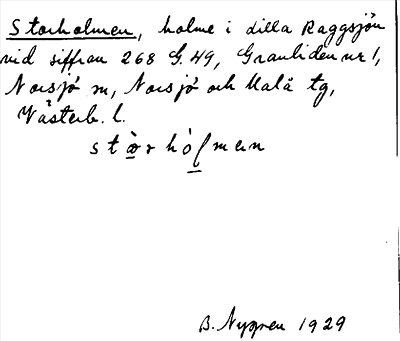 Storholmen, holme i Lilla Raggsjön
vid siffran 268 G. 49, Granliden nr 1,
Norsjö sn, Norsjö och Malå tg,
Västerb. l.
stòrhólmen
B. Nygren 1929